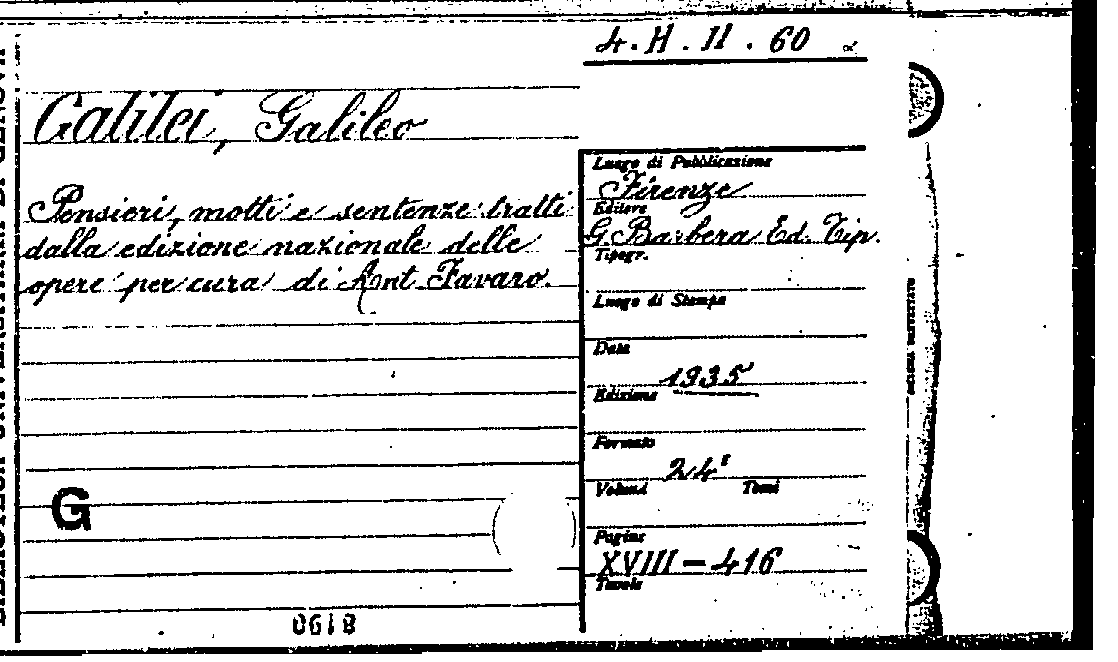 4.H.II.60
Galilei, Galileo
Pensieri, motti e sentenze tratti
dalla edizione nazionale delle
opere per cura di Ant. Favaro.
Luogo di Pubblicazione
Firenze
Editore
G. Barbera Ed. Tip.
Tipogr.
Luogo di Stampa
Data
1935
Edizione
Formato
24°
Volumi Tomi
Pagine
XVIII-416
Tavole
G
BIBLIOTECA UNIVERSITARIA DI GENOVA